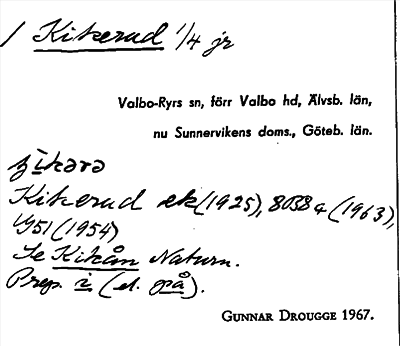 / Kikerud 1/4 jr
Valbo-Ryrs sn, förr Valbo hd, Älvsb. län,
nu Sunnervikens doms., Göteb. län.
Kikerud ek (1925), 8038 4 (1963),
U951 (1954)
Se Kikån Naturn.
Prep. i (el. på).
GUNNAR DROUGGE 1967.